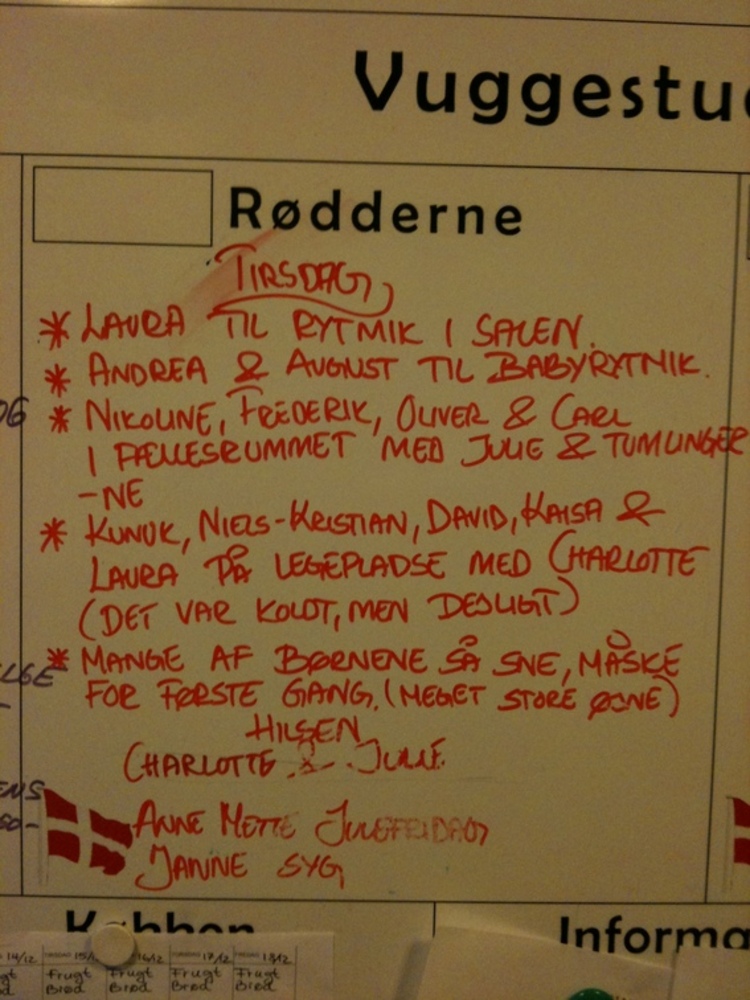 Vuggestue
Rødderne
TIRSDAG
* LAURA TIL RYTMIK I SALEN.
* ANDREA & AUGUST TIL BABYRYTMIK.
* NIKOLINE, FREDERIK, OLIVER & CARL
I FÆLLESRUMMET MED JULIE & TUMLINGER
-NE
* KUNUK, NIELS-KRISTIAN, DAVID, KAISA &
LAURA PÅ LEGEPLADSE MED CHARLOTTE
(DET VAR KOLDT, MEN DEJLIGT)
* MANGE AF BØRNENE SÅ SNE, MÅSKE
FOR FØRSTE GANG. (MEGET STORE ØJNE)
HILSEN
CHARLOTTE & JULIE
ANNE METTE JULEFRIDAG
JANNE SYG
Informa
14/12 15/1 16/12 17/12 18/12
Frugt Frugt Frugt Frugt
Brød Brød Brød Brød